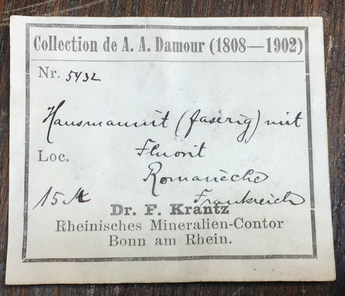 Collection de A. A. Damour (1808—1902)
Nr. 5432
Hausmannit (faserig) mit
Fluorit
Loc. Romanèche
Frankreich
15 M
Dr. F. Krantz
Rheinisches Mineralien-Contor
Bonn am Rhein.